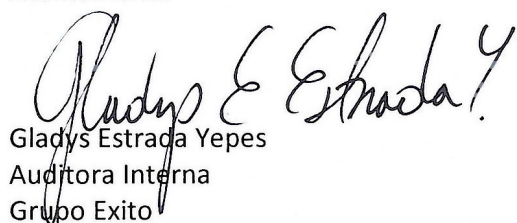 Gladys E Estrada Y.
Gladys Estrada Yepes
Auditora Interna
Grupo Exito